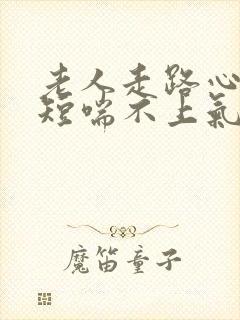 老人走路心
短喘不上氣
魔笛童子